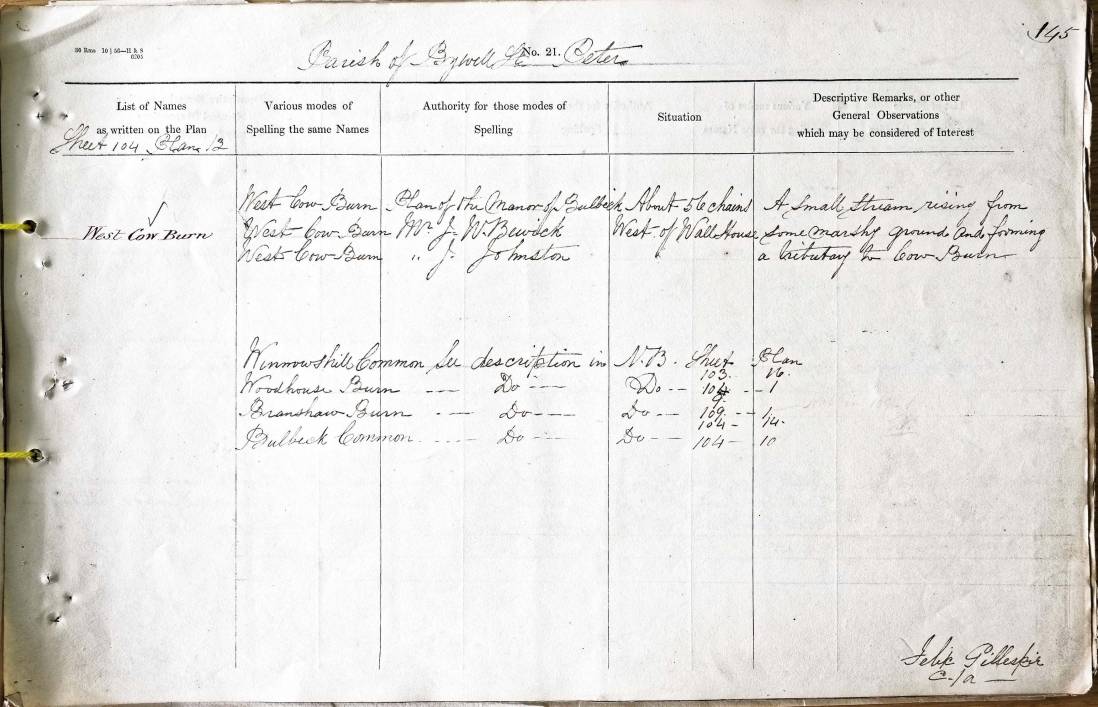 145
30 Rms 10 | 56—H & S
0205
Parish of Bywell St. No. 21. Peter
List of Names
as written on the Plan
Sheet 104 Plan 13
Various modes of
Spelling the same Names
Authority for those modes of
Spelling
Situation
Descriptive Remarks, or other
General Observations
which may be considered of Interest
West Cow Burn Plan of the Manor of Bulbeck About 56 chains A small stream rising from
West Cow Burn West Cow Burn Mr. J. W. Bewick West of Wall House some marshy ground and forming
West Cow Burn " J. Johnston a tributary to Cow Burn
Winnowshill Common See description in N.B. Sheet 103. Plan 16.
Woodhouse Burn --- Do --- Do -- 104 -- 1
Branshaw Burn --- Do --- Do -- 109. --
104 - 14.
Bulbeck Common --- Do --- Do -- 104 - 10
Felix Gillespie
C/a